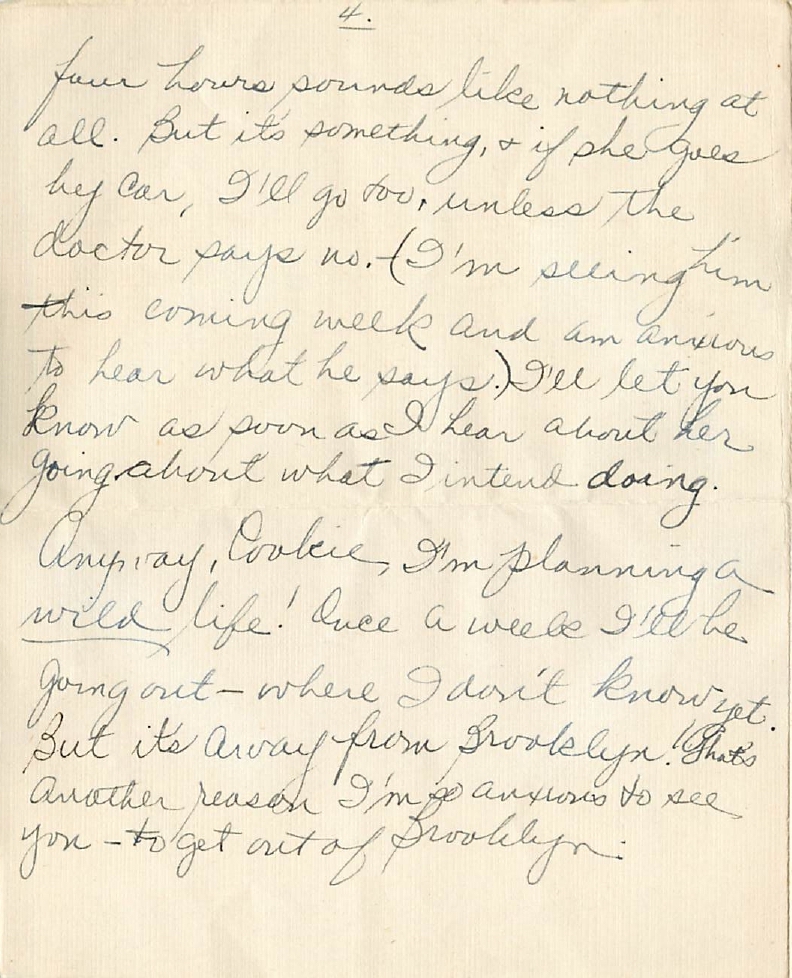 4.
four hours sounds like nothing at
all. But it's something, & if she goes
by car, I'll go too, unless the
doctor says no. (I'm seeing him
this coming week and am anxious
to hear what he says.) I'll let you
know as soon as I hear about her
going about what I intend doing.
Anyway, Cookie, I'm planning a
wild life! Once a week I'll be
going out – where I don't know yet.
But it's away from Brooklyn! That's
another reason I'm so anxious to see
you – to get out of Brooklyn.